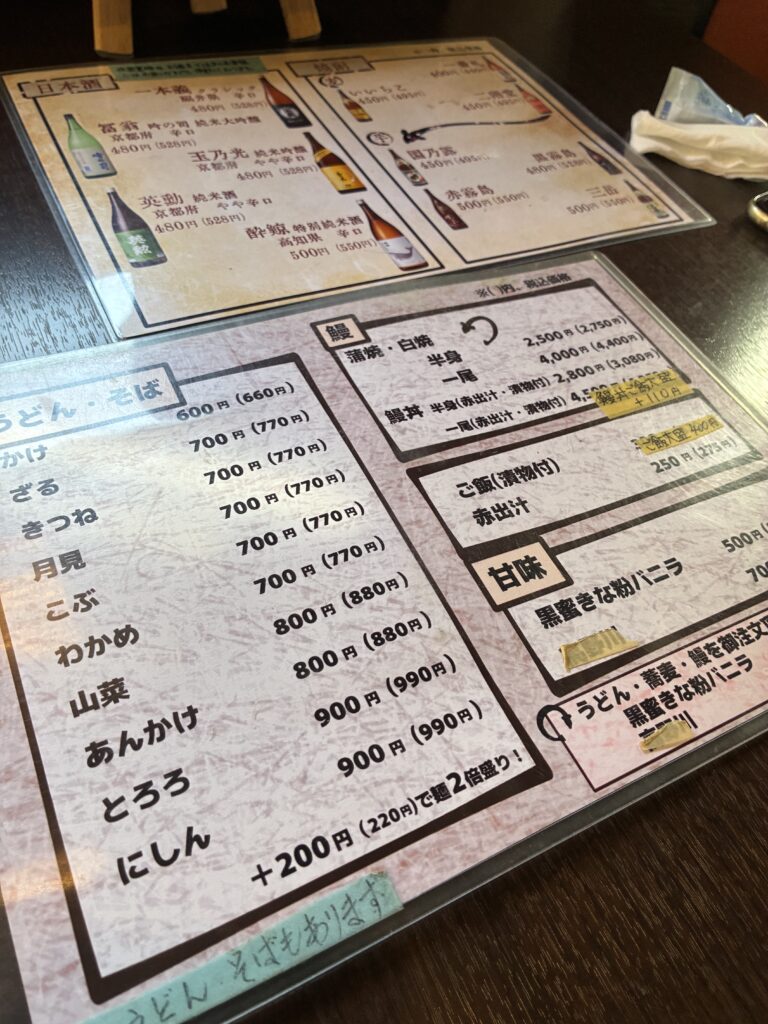 日本酒
一本義 クラシック
福井県 辛口
480円(528円)
冨翁 吟の司 純米大吟醸
京都府 辛口
480円(528円)
玉乃光 純米吟醸
京都府 やや辛口
480円(528円)
英勲 純米酒
京都府 やや辛口
480円(528円)
酔鯨 特別純米酒
高知県 辛口
500円(550円)
焼酎
いいちこ
450円(495円)
二階堂
450円(495円)
黒霧島
480円(528円)
赤霧島
500円(550円)
三岳
500円(550円)
※( )内、税込価格
うどん・そば
かけ 600円(660円)
ざる 700円(770円)
きつね 700円(770円)
月見 700円(770円)
こぶ 700円(770円)
わかめ 700円(770円)
山菜 800円(880円)
あんかけ 800円(880円)
とろろ 900円(990円)
にしん 900円(990円)
+200円(220円)で麺2倍盛り!
うどん そばもあります
鰻
蒲焼・白焼
半身 2,500円(2,750円)
一尾 4,000円(4,400円)
鰻丼 半身(赤出汁・漬物付) 2,800円(3,080円)
一尾(赤出汁・漬物付)
鰻丼ご飯大盛
+110円
ご飯大盛 400円
ご飯(漬物付) 250円(275円)
赤出汁
甘味
黒蜜きな粉バニラ 500円
うどん・蕎麦・鰻を御注文
黒蜜きな粉バニラ